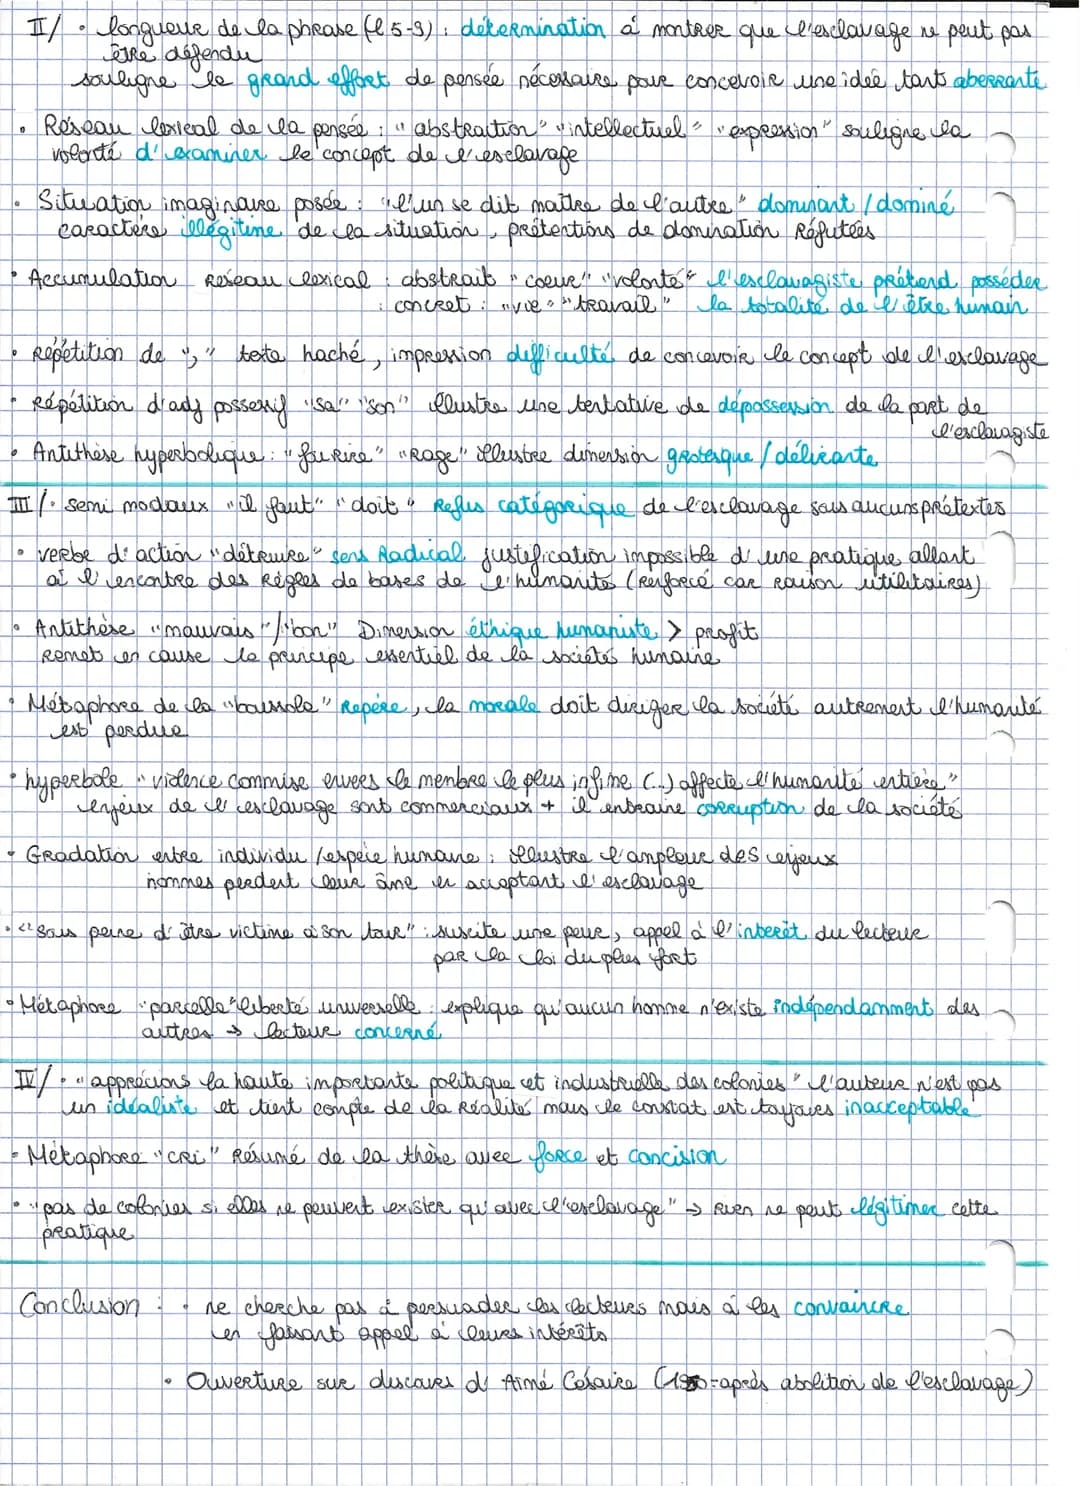 II/ • longueur de la phrase (l 5-9) : détermination à montrer que l'esclavage ne peut pas
être défendu
souligne le grand effort de pensée nécessaire pour concevoir une idée tant aberrante
• Réseau lexical de la pensée : "abstraction" "intellectuel" "expression" souligne la
volonté d'examiner le concept de l'esclavage
• Situation imaginaire posée : "l'un se dit maître de l'autre" dominant / dominé
caractère illégitime de la situation, prétentions de domination Réfutées
• Accumulation Réseau lexical : abstrait "coeur" "volonté" l'esclavagiste prétend posséder
: concret : "vie" "travail" la totalité de l'être humain
• Répétition de "," texte haché, impression difficulté de concevoir le concept de l'esclavage
• Répétition d'adj possessif "sa" "son" illustre une tentative de dépossession de la part de
l'esclavagiste
• Antithèse hyperbolique : "fou rire" "Rage" illustre dimension grotesque / délirante
III/ • semi modaux "il faut" "doit" Refus catégorique de l'esclavage sous aucuns prétextes
• verbe d'action "détruire" sens Radical justification impossible d'une pratique allant
à l'encontre des Règles de bases de l'humanité (renforcé car raison utilitaires)
• Antithèse "mauvais" / "bon" Dimension éthique humaniste > profit
Remet en cause le principe essentiel de la société humaine
• Métaphore de la "boussole" Repère, la morale doit diriger la société autrement l'humanité
est perdue
• hyperbole "violence commise envers le membre le plus infime (...) affecte l'humanité entière"
enjeux de l'esclavage sont commerciaux + il entraine corruption de la société
• Gradation entre individu / espèce humaine : illustre l'ampleur des enjeux
hommes perdent leur âme en acceptant l'esclavage
• "Sous peine d'être victime à son tour" : suscite une peur, appel à l'intérêt du lecteur
par la loi du plus fort
• Métaphore "parcelle" liberté universelle : explique qu'aucun homme n'existe indépendamment des
autres → lecteur concerné
IV/ • "apprécions la haute importante politique et industrielle des colonies" l'auteur n'est pas
un idéaliste et tient compte de la Réalité mais le constat est toujours inacceptable
• Métaphore "CRI" Résumé de la thèse avec force et concision
• "pas de colonies si elles ne peuvent exister qu'avec l'esclavage" → Rien ne peut légitimer cette
pratique
Conclusion : • ne cherche pas à persuader les lecteurs mais à les convaincre
en faisant appel à leurs intérêts
• Ouverture sur discours d'Aimé Césaire (1950 = après abolition de l'esclavage)